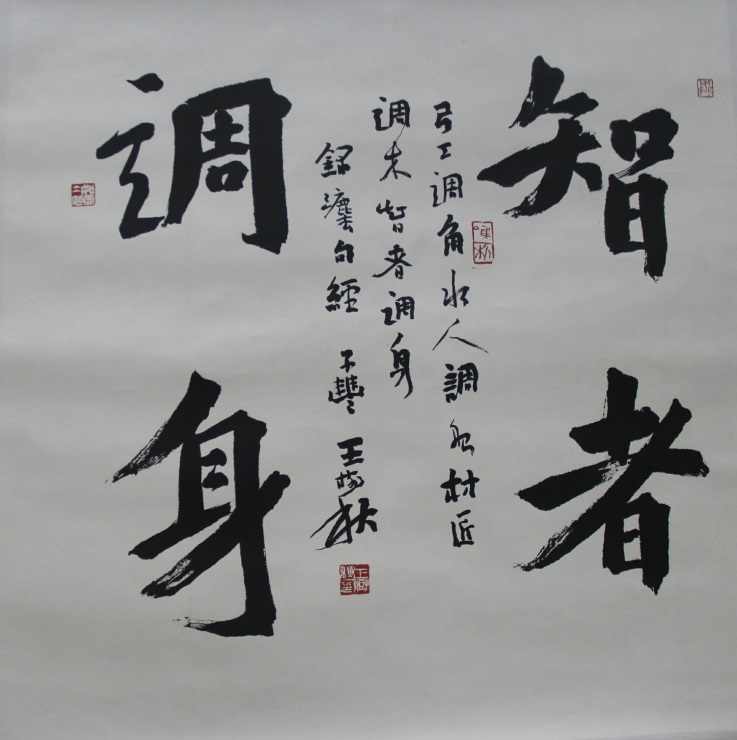 智者
調身
弓工調角水人調船材匠
調木智者調身
錄灋句經 豐 王 秋